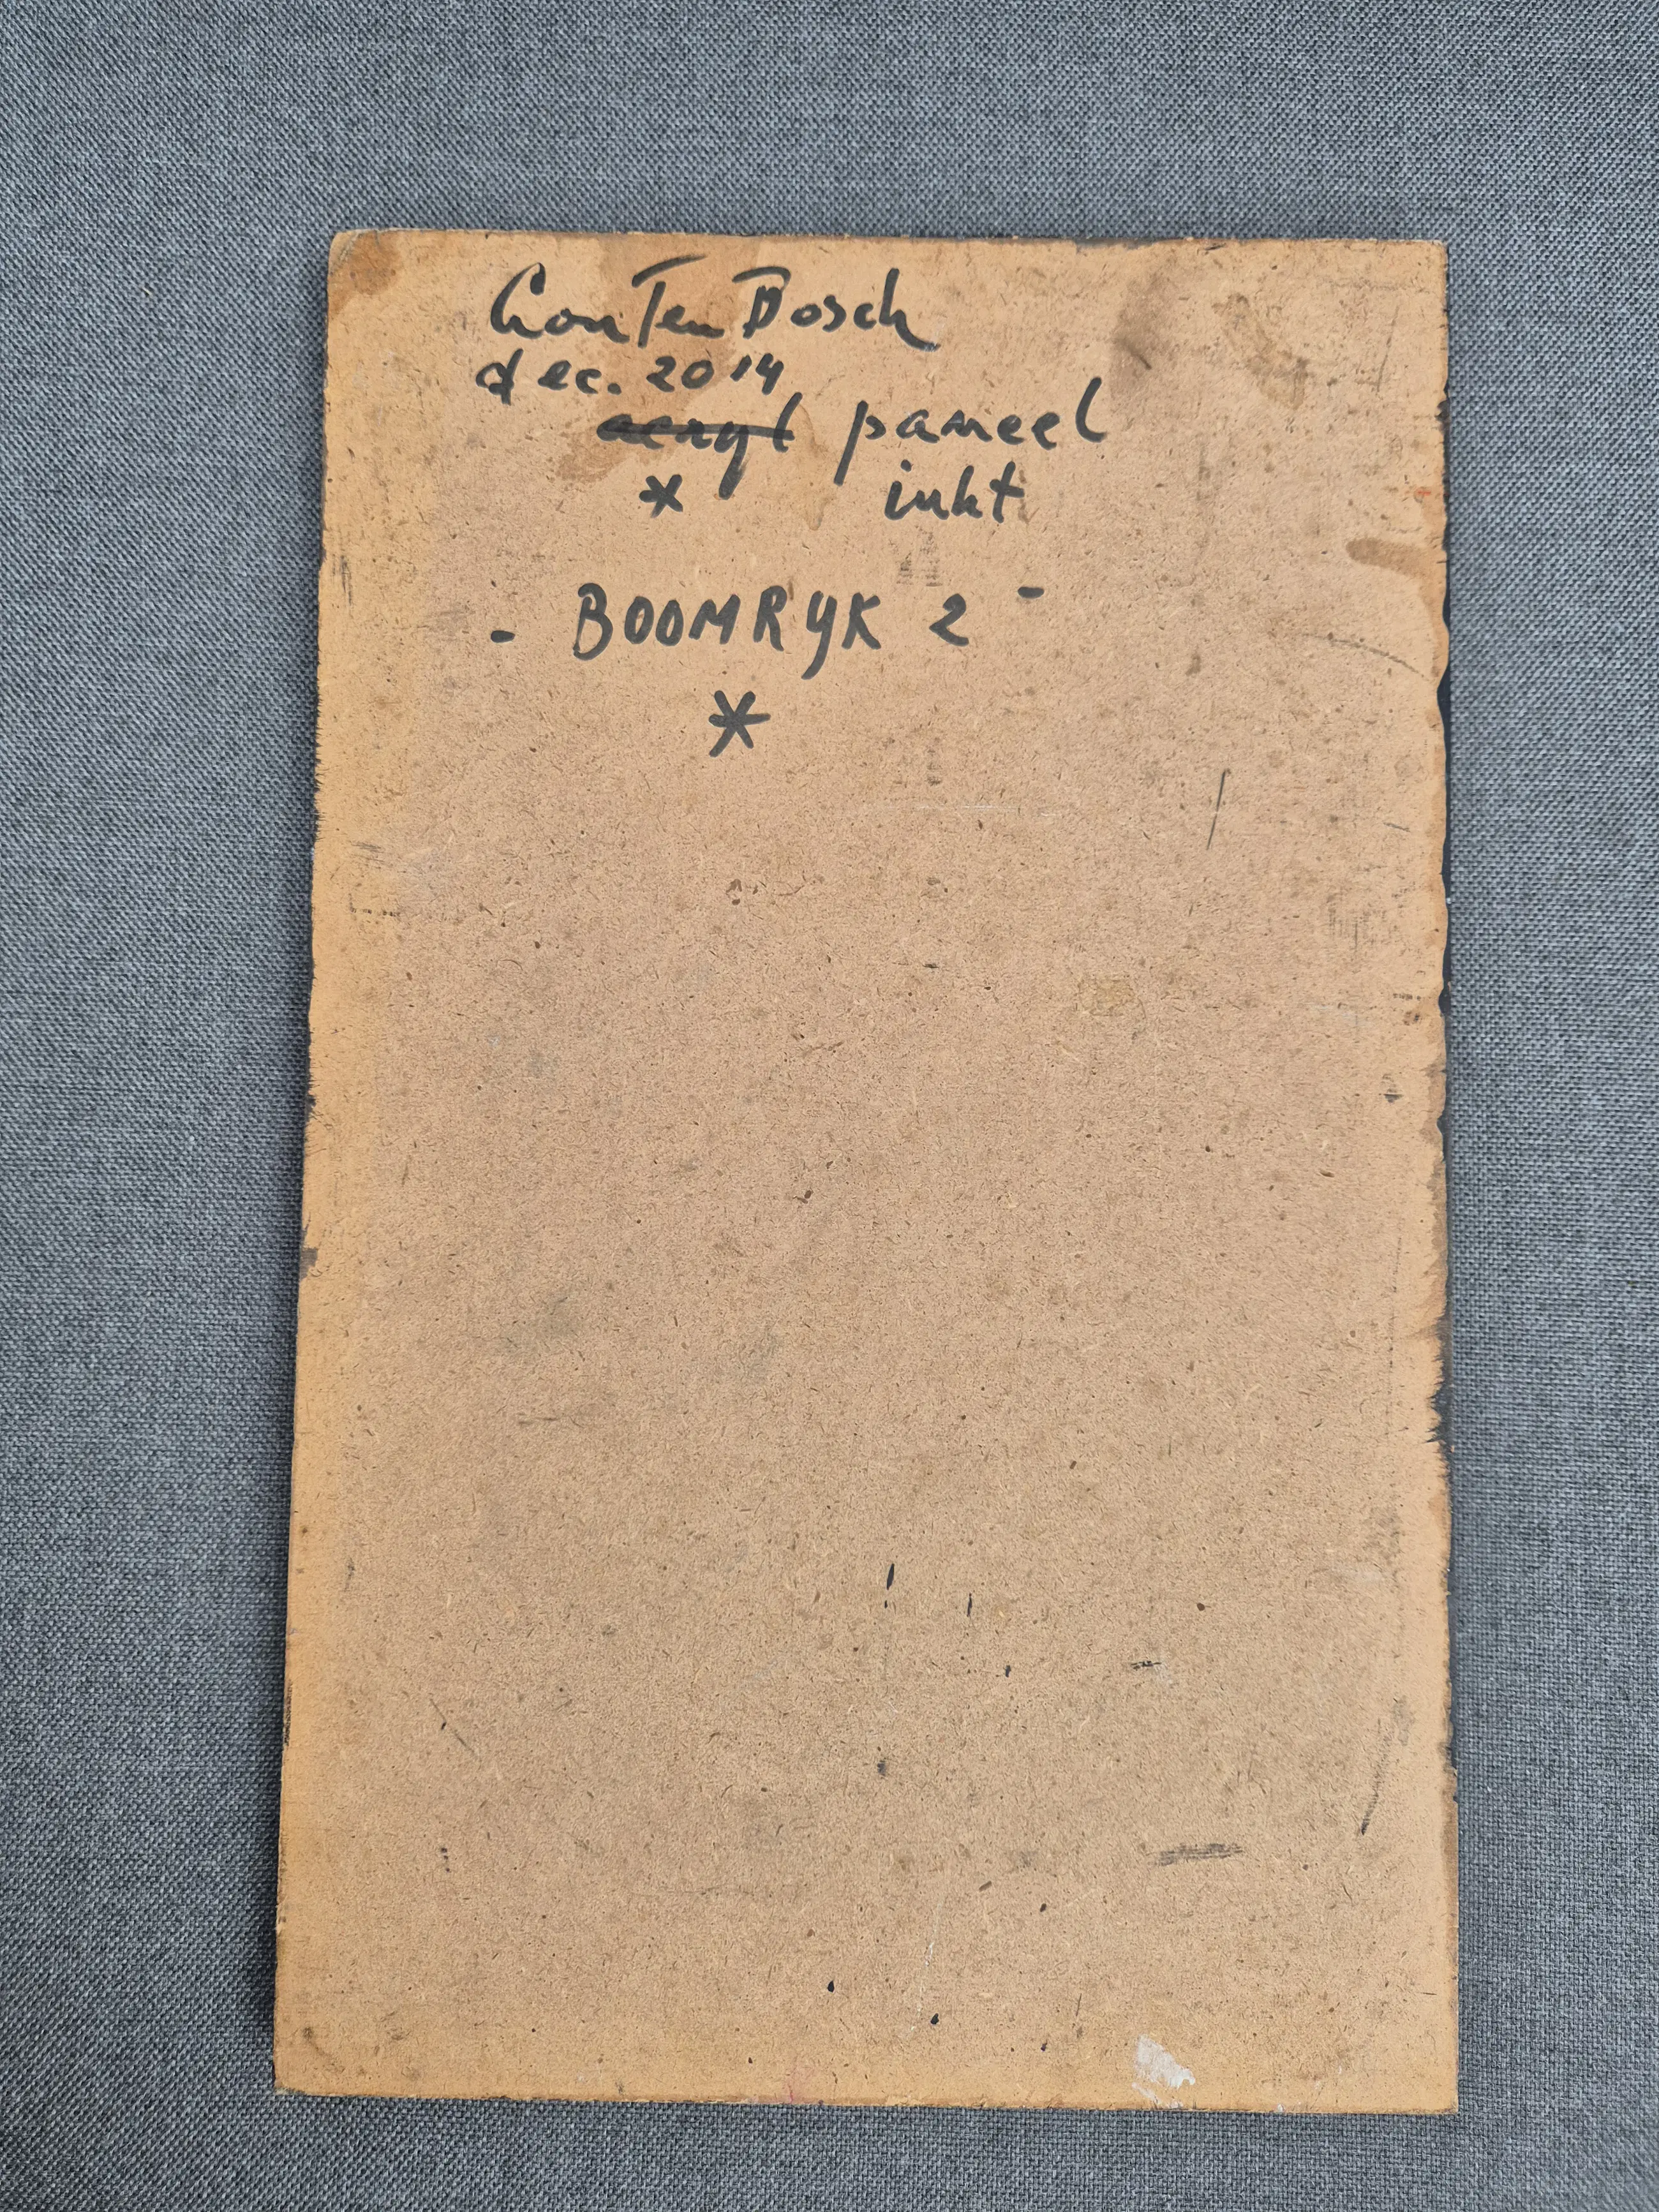 Con Ten Bosch
dec. 2014
acryl paneel
* inkt
- BOOMRYK 2 -
*